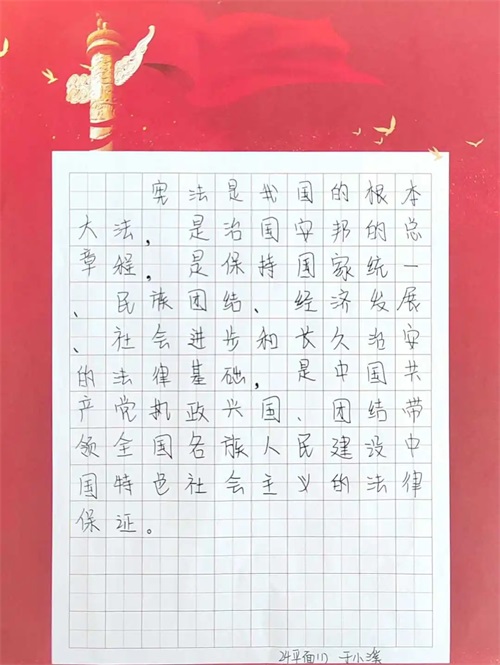 宪法是我国的根本
大法，是治国安邦的总
章程，是保持国家统一
、民族团结、经济发展
、社会进步和长久治安
的法律基础，是中国共
产党执政兴国、团结带
领全国各族人民建设中
国特色社会主义的法律
保证。
24平面(1) 于小